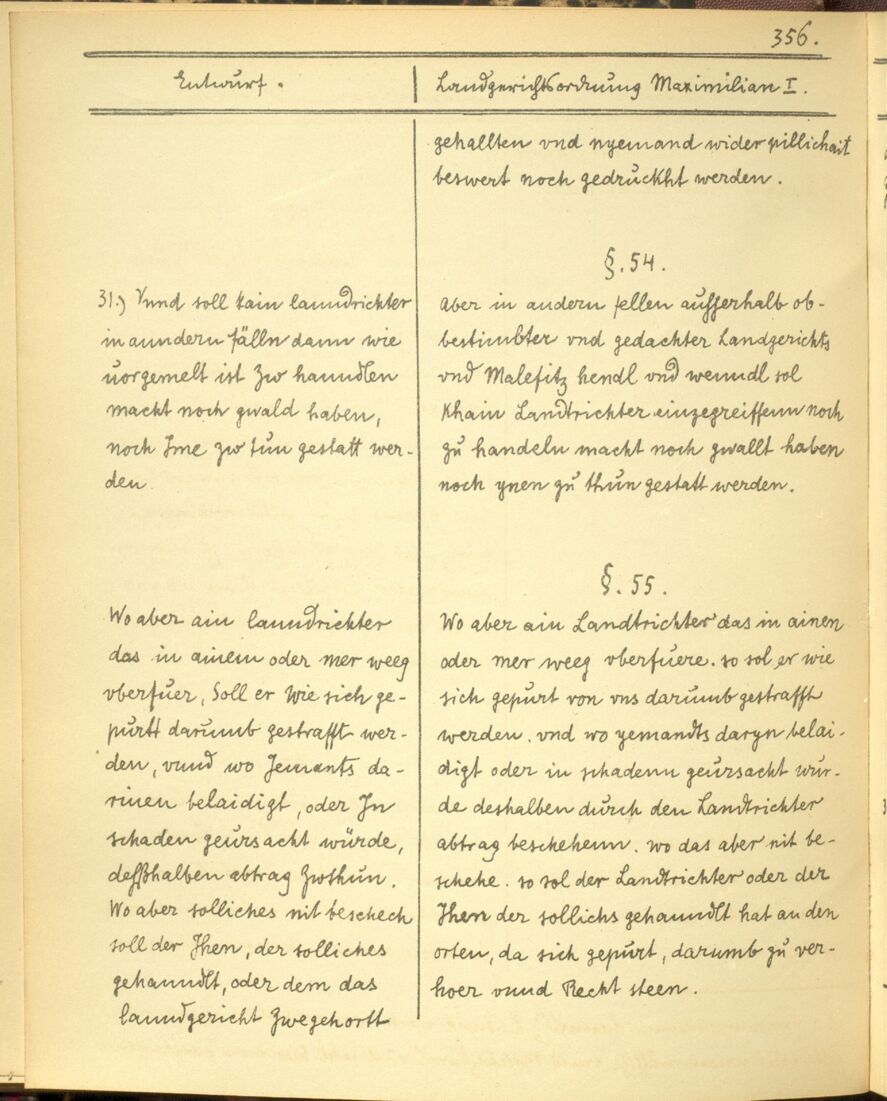 356.
Entwurf.
Landgerichtsordnung Maximilian I.
31.) Vnnd soll kain lanndrichter
in anndern fälln dann wie
uorgemelt ist zw hanndlen
macht noch gwald haben,
noch Ime zw tun gestatt wer-
den
Wo aber ain lanndrichter
das in ainem oder mer weeg
vberfuer, Soll er wie sich ge-
purtt darumb gestrafft wer-
den, vnnd wo Jemants da-
rinen belaidigt, oder In
schaden geursacht würde,
deßhalben abtrag zwthun.
Wo aber solliches nit beschech
soll der Jhen, der solliches
gehanndlt, oder dem das
lanndgericht zwegehortt
gehallten vnd nyemand wider pillichait
beswert noch gedruckht werden.
§. 54.
Aber in andern fellen aufserhalb ob-
bestimbter vnd gedachter Landgerichts
vnd Malefitz hendl vnd wenndl sol
khain Landtrichter einzegreiffenn noch
zu handeln macht noch gwallt haben
noch ynen zu thun gestatt werden.
§. 55.
Wo aber ain Landtrichter das in ainen
oder mer weeg vberfuere. so sol er wie
sich gepurt von vns darumb gestrafft
werden. vnd wo yemandts daryn belai-
digt oder in schadenn geursacht wur-
de deshalben durch den Landtrichter
abtrag beschehenn. wo das aber nit be-
schehe. so sol der Landtrichter oder der
Jhen der sollichs gehanndlt hat an den
orten, da sich gepurt, darumb zu ver-
hoer vnnd Recht steen.